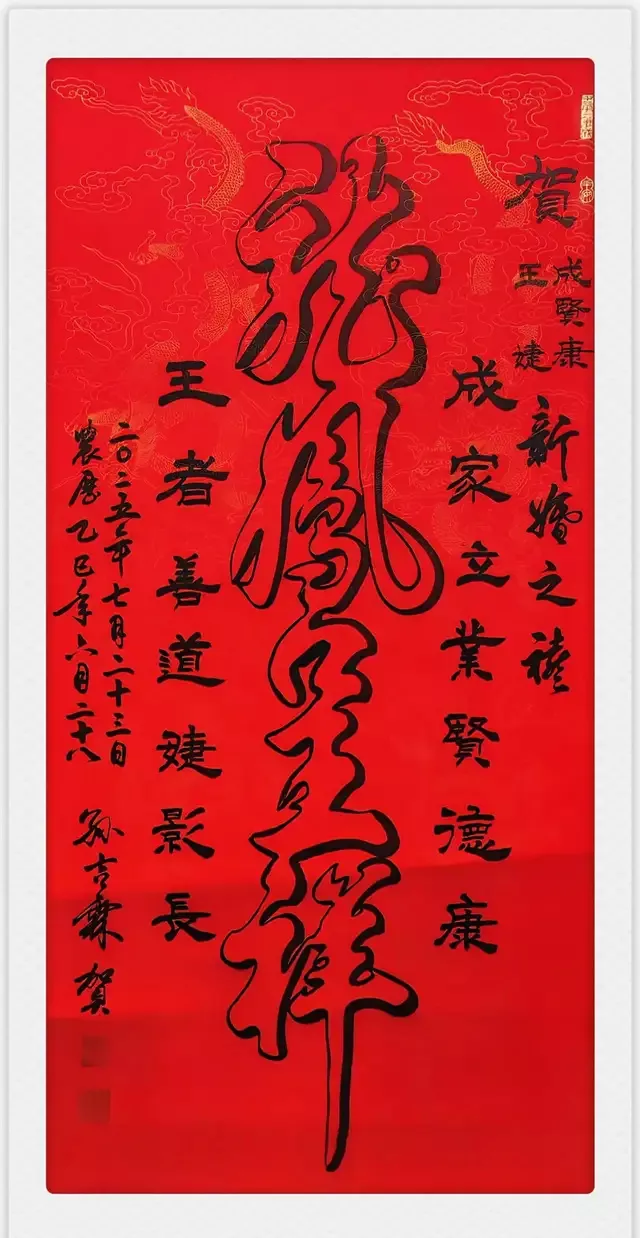 賀
成賢康
王婕
新婚之禧
成家立業賢德康
龍鳳呈祥
王者善道婕影長
二〇二五年七月二十三日
農曆乙巳年六月二十八
孫吉霖 賀